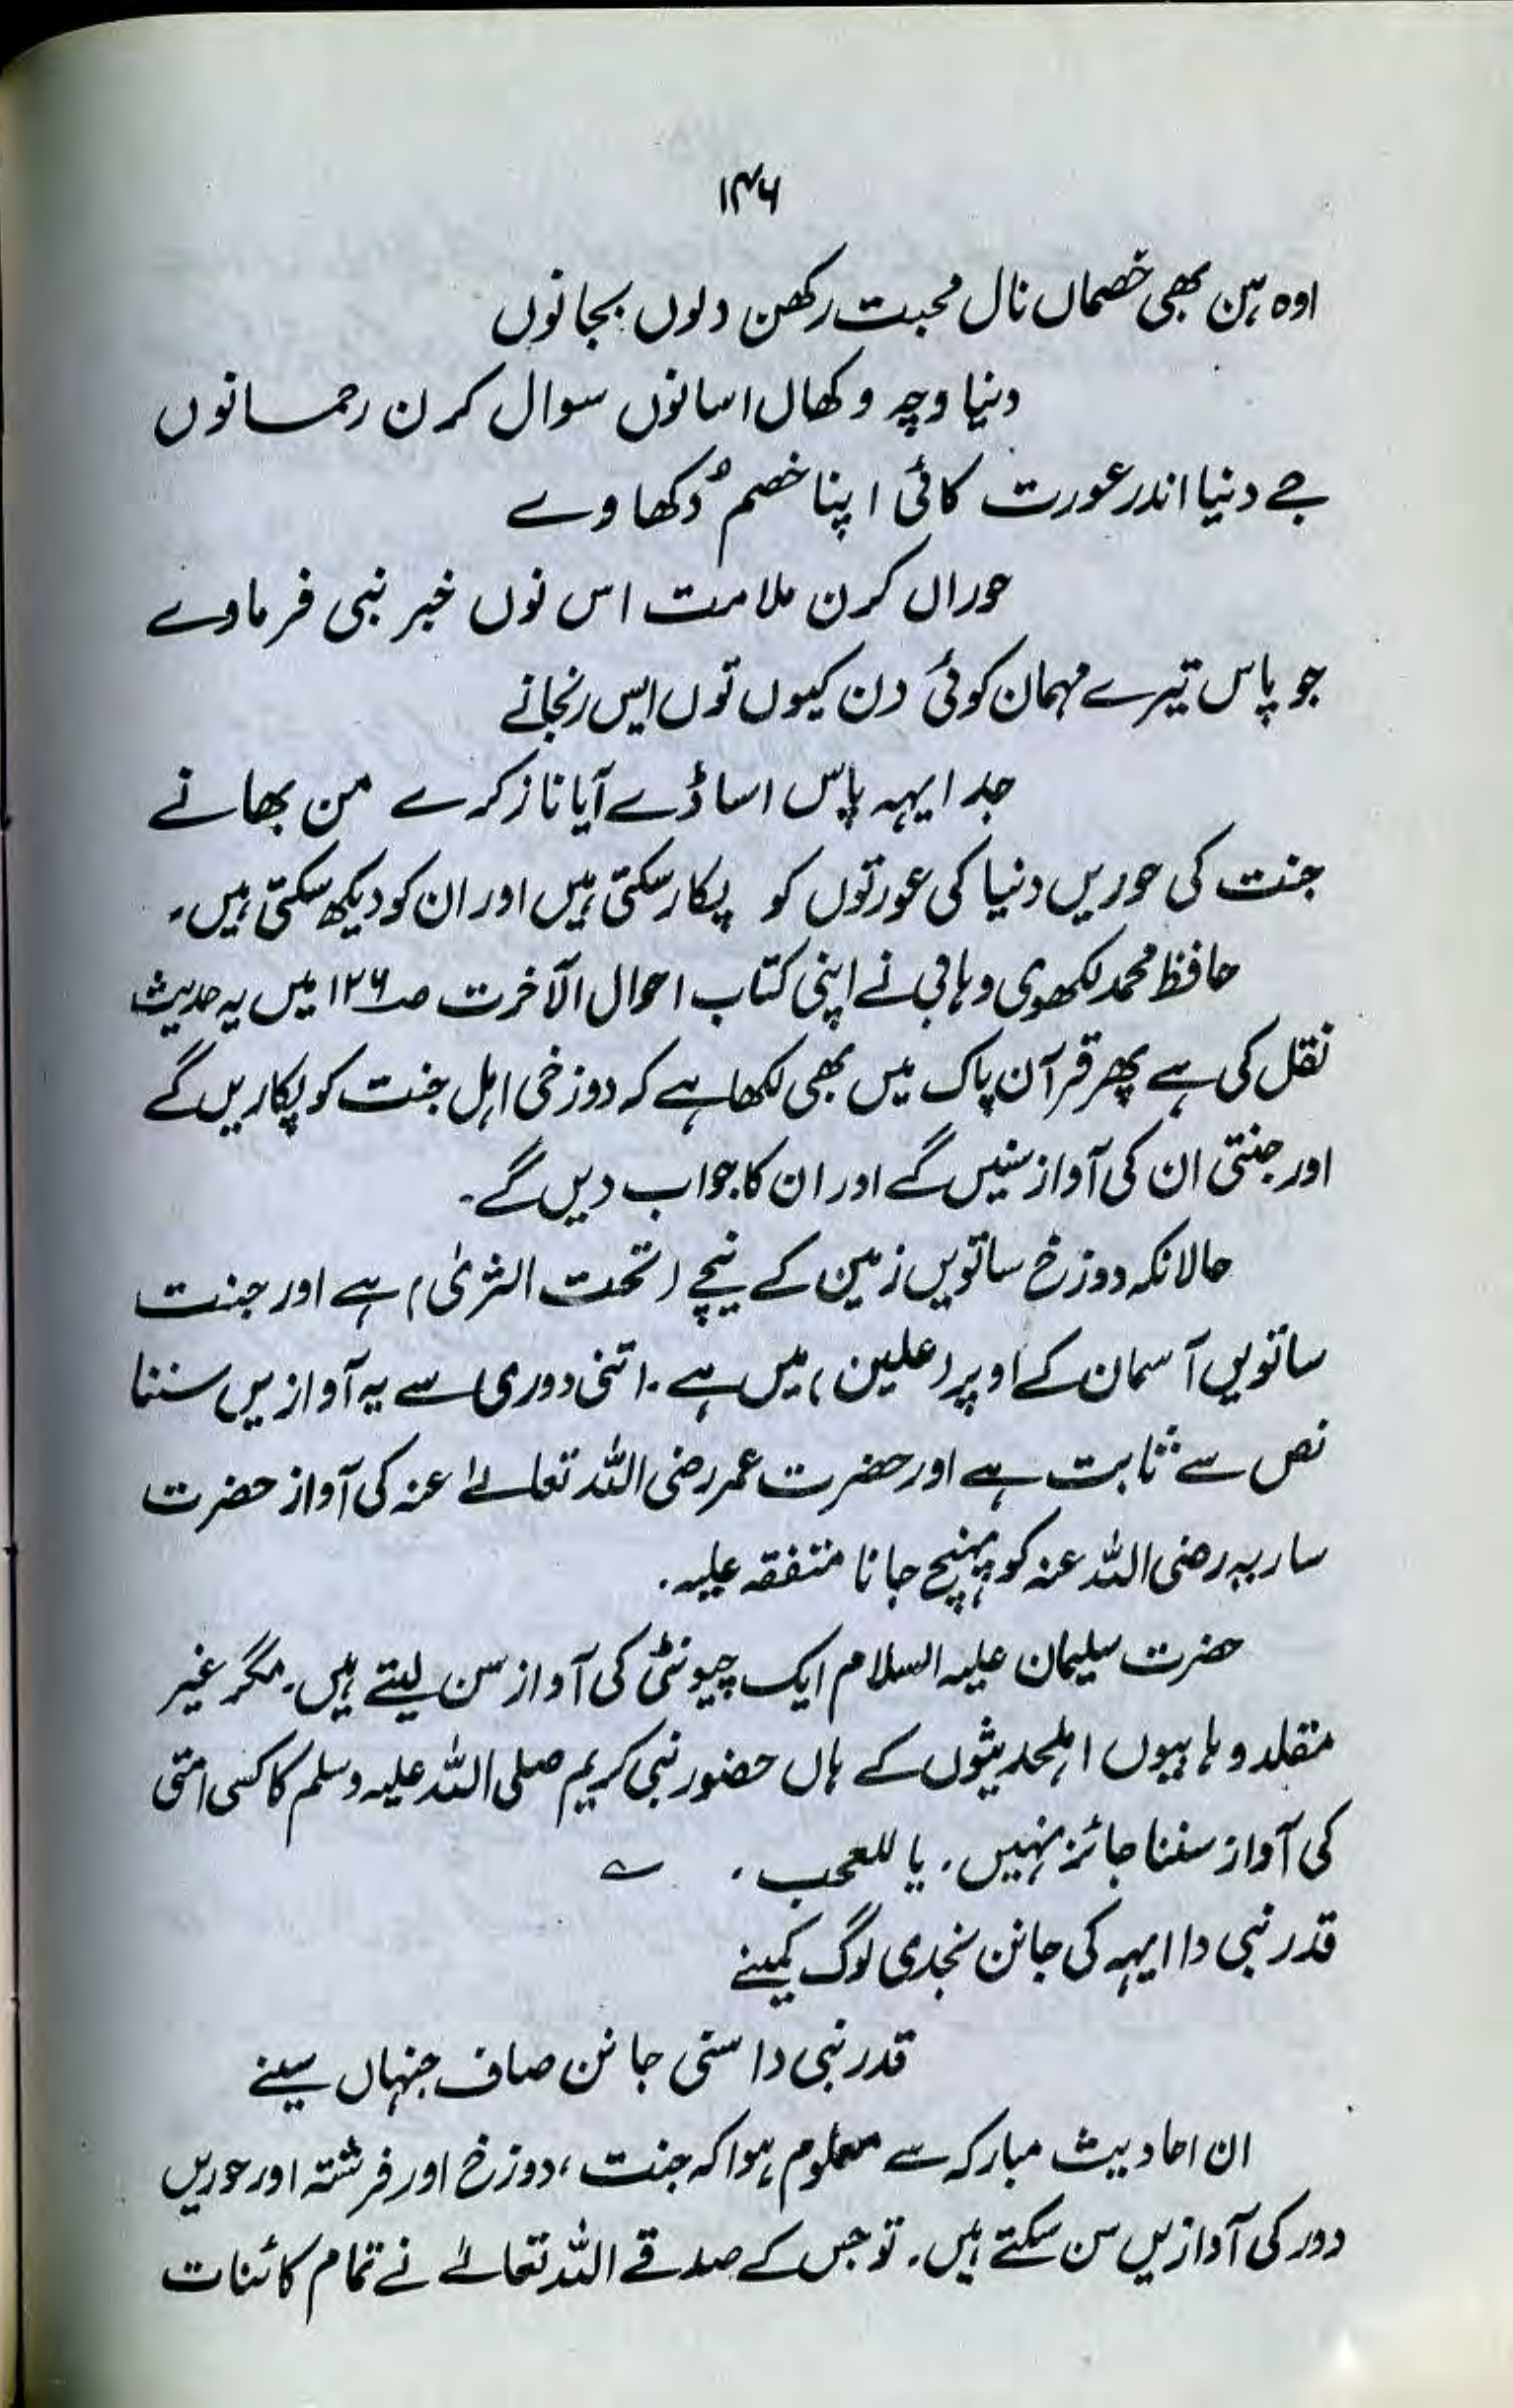 ۱۴۶
اوہ ہن بھی خصماں نال محبت رکھن دلوں بجانوں
دنیا وچہ وکھال اسانوں سوال کرن رحمانوں
جے دنیا اندر عورت کائی اپنا خصم دُکھاوے
حوراں کرن ملامت اس نوں خبر نبی فرماوے
جو پاس تیرے مہمان کوئی دن کیوں توں ایس رنجانے
جد ایہہ پاس اساڈے آیا ناز کرے من بھانے
جنت کی حوریں دنیا کی عورتوں کو پکار سکتی ہیں اور ان کو دیکھ سکتی ہیں۔
حافظ محمد لکھوی وہابی نے اپنی کتاب احوال الآخرت صـ۱۲۶ میں یہ حدیث
نقل کی ہے پھر قرآن پاک میں بھی لکھا ہے کہ دوزخی اہل جنت کو پکاریں گے
اور جنتی ان کی آواز سنیں گے اور ان کا جواب دیں گے۔
حالانکہ دوزخ ساتویں زمین کے نیچے (تحت الثریٰ) ہے اور جنت
ساتویں آسمان کے اوپر (علین) میں ہے۔ اتنی دوری سے یہ آوازیں سننا
نص سے ثابت ہے اور حضرت عمر رضی اللہ تعالےٰ عنہ کی آواز حضرت
ساریہ رضی اللہ عنہ کو پہنچ جانا متفقہ علیہ۔
حضرت سلیمان علیہ السلام ایک چیونٹی کی آواز سن لیتے ہیں۔ مگر غیر
مقلد وہابیوں اہلحدیثوں کے ہاں حضور نبی کریم صلی اللہ علیہ وسلم کا کسی امتی
کی آواز سننا جائز نہیں۔ یا للعجب۔ ؎
قدر نبی دا ایہہ کی جانن نجدی لوگ کمینے
قدر نبی دا سنی جانن صاف جنہاں سینے
ان احادیث مبارکہ سے معلوم ہوا کہ جنت، دوزخ اور فرشتہ اور حوریں
دور کی آوازیں سن سکتے ہیں۔ تو جس کے صدقے اللہ تعالےٰ نے تمام کائنات